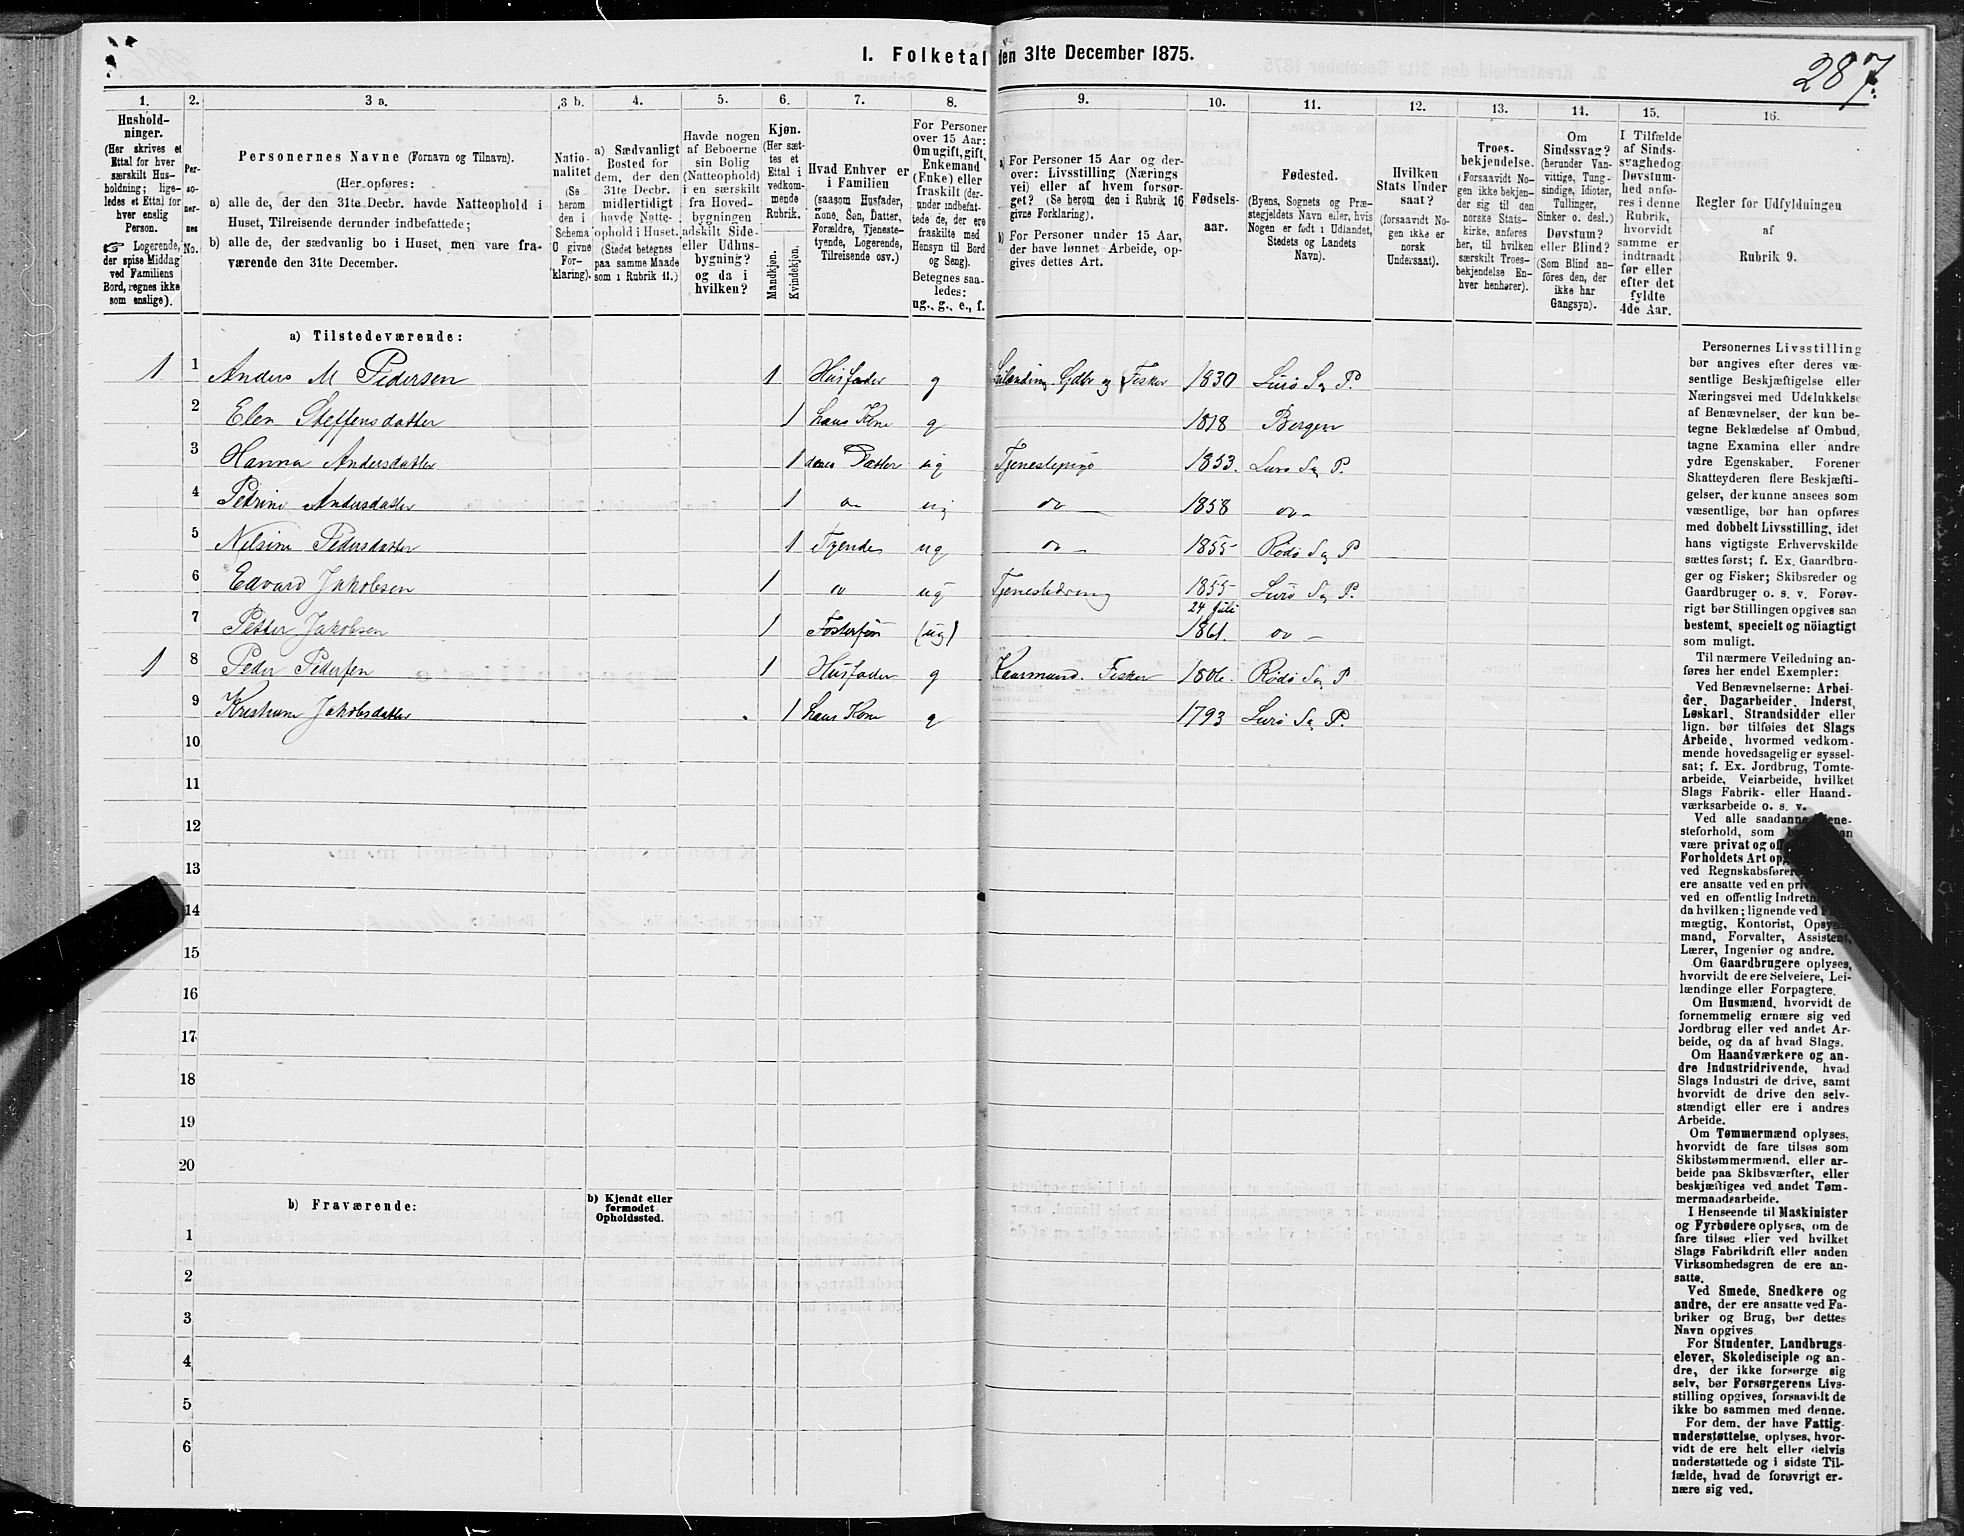 I. Folketal den 31te December 1875.
287.
1. 2. 3 a. 3 b. 4. 5. 6. 7. 8. 9. 10. 11. 12. 13. 14. 15. 16.
Hushold-
ninger.
(Her skrives et
Ettal for hver
særskilt Hus-
holdning; lige-
ledes et Ettal for
hver enslig
Person.
☞ Logerende,
der spise Middag
ved Familiens
Bord, regnes ikke
som enslige).
Per-
so-
ner-
nes
No.
Personernes Navne (Fornavn og Tilnavn).
(Her opføres:
a) alle de, der den 31te Decbr. havde Natteophold i
Huset, Tilreisende derunder indbefattede;
b) alle de, der sædvanlig bo i Huset, men vare fra-
værende den 31te December.
Natio-
nalitet
(Se
herom
den i
Schema
O givne
For-
klaring).
a) Sædvanligt
Bosted for
dem, der den
31te Decbr.
midlertidigt
havde Natte-
ophold i Huset.
(Stedet betegnes
paa samme Maade
som i Rubrik 11.)
Havde nogen
af Beboerne
sin Bolig
(Natteophold)
i en særskilt
fra Hoved-
bygningen
adskilt Side-
eller Udhus-
bygning?
og da i
hvilken?
Kjøn.
(Her sæt-
tes et
Ettal i
vedkom-
mende
Rubrik.
Mandkjøn.
Kvindekjøn.
Hvad Enhver er
i Familien
(saasom Husfader,
Kone, Søn, Datter,
Forældre, Tjeneste-
tyende, Logerende,
Tilreisende osv.)
For Personer
over 15 Aar:
Om ugift, gift,
Enkemand
(Enke) eller
fraskilt (der-
under indbefat-
tede de, der ere
fraskilte med
Hensyn til Bord
og Seng).
Betegnes saa-
ledes:
ug., g., e., f.
a) For Personer 15 Aar og der-
over: Livsstilling (Nærings
vei) eller af hvem forsør-
get? (Se herom den i Rubrik 16
givne Forklaring).
b) For Personer under 15 Aar,
der have lønnet Arbeide, op-
gives dettes Art.
Fødsels-
aar.
Fødested.
(Byens, Sognets og Præ-
stegjeldets Navn eller, hvis
Nogen er født i Udlandet,
Stedets og Landets
Navn).
Hvilken
Stats Under
saat?
(forsaavidt No-
gen ikke er
norsk
Undersaat).
Troes-
bekjendelse.
(Forsaavidt No-
gen ikke bekjen-
der sig til den
norske Stats-
kirke, anføres
her, til hvilken
særskilt Troes-
bekjendelse En-
hver henhører).
Om
Sindssvag?
(herunder Van-
vittige, Tung-
sindige, Idioter,
Tullinger,
Sinker o. desl.)
Døvstum?
eller Blind?
(Som Blind an-
føres den, der
ikke har
Gangsyn).
I Tilfælde
af Sinds-
svaghed og
Døvstum-
hed anfø-
res i denne
Rubrik,
hvorvidt
samme er
indtraadt
før eller
efter det
fyldte
4de Aar.
Regler for Udfyldningen
af
Rubrik 9.
a) Tilstedeværende:
1 1 Anders M Pedersen 1 Husfader g Leilænding Gdbr og Fisker 1830 Lurø S og P.
2 Elen Steffensdatter 1 hans Kone g 1818 Bergen
3 Hanna Andersdatter 1 deres Datter ug Tjenestepige 1853. Lurø S og P.
4 Petrine Andersdatter 1 do ug do 1858 do
5 Nilsine Pedersdatter 1 Tyende ug do 1855 Rødø S og P
6 Edvard Jakobsen 1 do ug Tjenestedreng 1855 Lurø S og P.
24 Juli
7 Petter Jakobsen 1 Fostersøn (ug) 1861. do
1 8 Peder Pedersen 1 Husfader g Kaarmand. Fisker 1806. Rødø S og P
9 Kristiane Jakobsdatter 1 hans Kone g 1793 Lurø S og P.
10
11
12
13
14
15
16
17
18
19
20
b) Fraværende:
b) Kjendt eller
formodet
Opholdssted.
1
2
3
4
5
6
Personernes Livsstilling
bør angives efter deres væ-
sentlige Beskjæftigelse eller
Næringsvei med Udelukkelse
af Benævnelser, der kun be-
tegne Beklædelse af Ombud,
tagne Examina eller andre
ydre Egenskaber. Forener
Skatteyderen flere Beskjæfti-
gelser, der kunne ansees som
væsentlige, bør han opføres
med dobbelt Livsstilling, idet
hans vigtigste Erhvervskilde
sættes først; f. Ex. Gaardbru-
ger og Fisker; Skibsreder og
Gaardbruger o. s. v. Forøv-
rigt bør Stillingen opgives saa
bestemt, specielt og nöiagtigt
som muligt.
Til nærmere Veiledning an-
føres her endel Exempler:
Ved Benævnelserne: Arbei-
der, Dagarbeider, Inderst,
Løskarl, Strandsidder eller
lign. bør tilføies det Slags
Arbeide, hvormed vedkom-
mende hovedsagelig er syssel-
sat; f. Ex. Jordbrug, Tomte-
arbeide, Veiarbeide, hvilket
Slags Fabrik- eller Haand-
værksarbeide o. s. v.
Ved alle saadanne
steforhold, som
være privat og
Forholdets Art
ved Regnskabsfører
ere ansatte ved en
ved en offentlig
da hvilken; lignende ved
mægtig, Kontorist,
mand, Forvalter, Assistent,
Lærer, Ingeniør og andre.
Om Gaardbrugere oplyses,
hvorvidt de ere Selveiere, Lei-
lændinge eller Forpagtere.
Om Husmænd, hvorvidt de
fornemmelig ernære sig ved
Jordbrug eller ved andet Ar-
beide, og da af hvad Slags.
Om Haandværkere og an-
dre Industridrivende, hvad
Slags Industri de drive, samt
hvorvidt de drive den selv-
stændigt eller ere i andres
Arbeide.
Om Tømmermænd oplyses,
hvorvidt de fare tilsøs som
Skibstømmermænd, eller ar-
beide paa Skibsværfter, eller
beskjæftiges ved andet Tøm-
mermandsarbeide.
I Henseende til Maskinister
og Fyrbødere oplyses, om de
fare tilsøs eller ved hvilket
Slags Fabrikdrift eller anden
Virksomhedsgren de ere an-
satte.
Ved Smede, Snedkere og
andre, der ere ansatte ved Fa-
briker og Brug, bør dettes
Navn opgives
For Studenter, Landbrugs-
elever, Skoledisciple og an-
dre, der ikke forsørge sig
selv, bør Forsørgerens Livs-
stilling opgives, forsaavidt de
ikke bo sammen med denne.
For dem, der have Fattig-
understøttelse, oplyses, hvor-
vidt de ere helt eller delvis
understøttede og i sidste Til-
fælde, hvad de forøvrigt er-
nære sig ved.